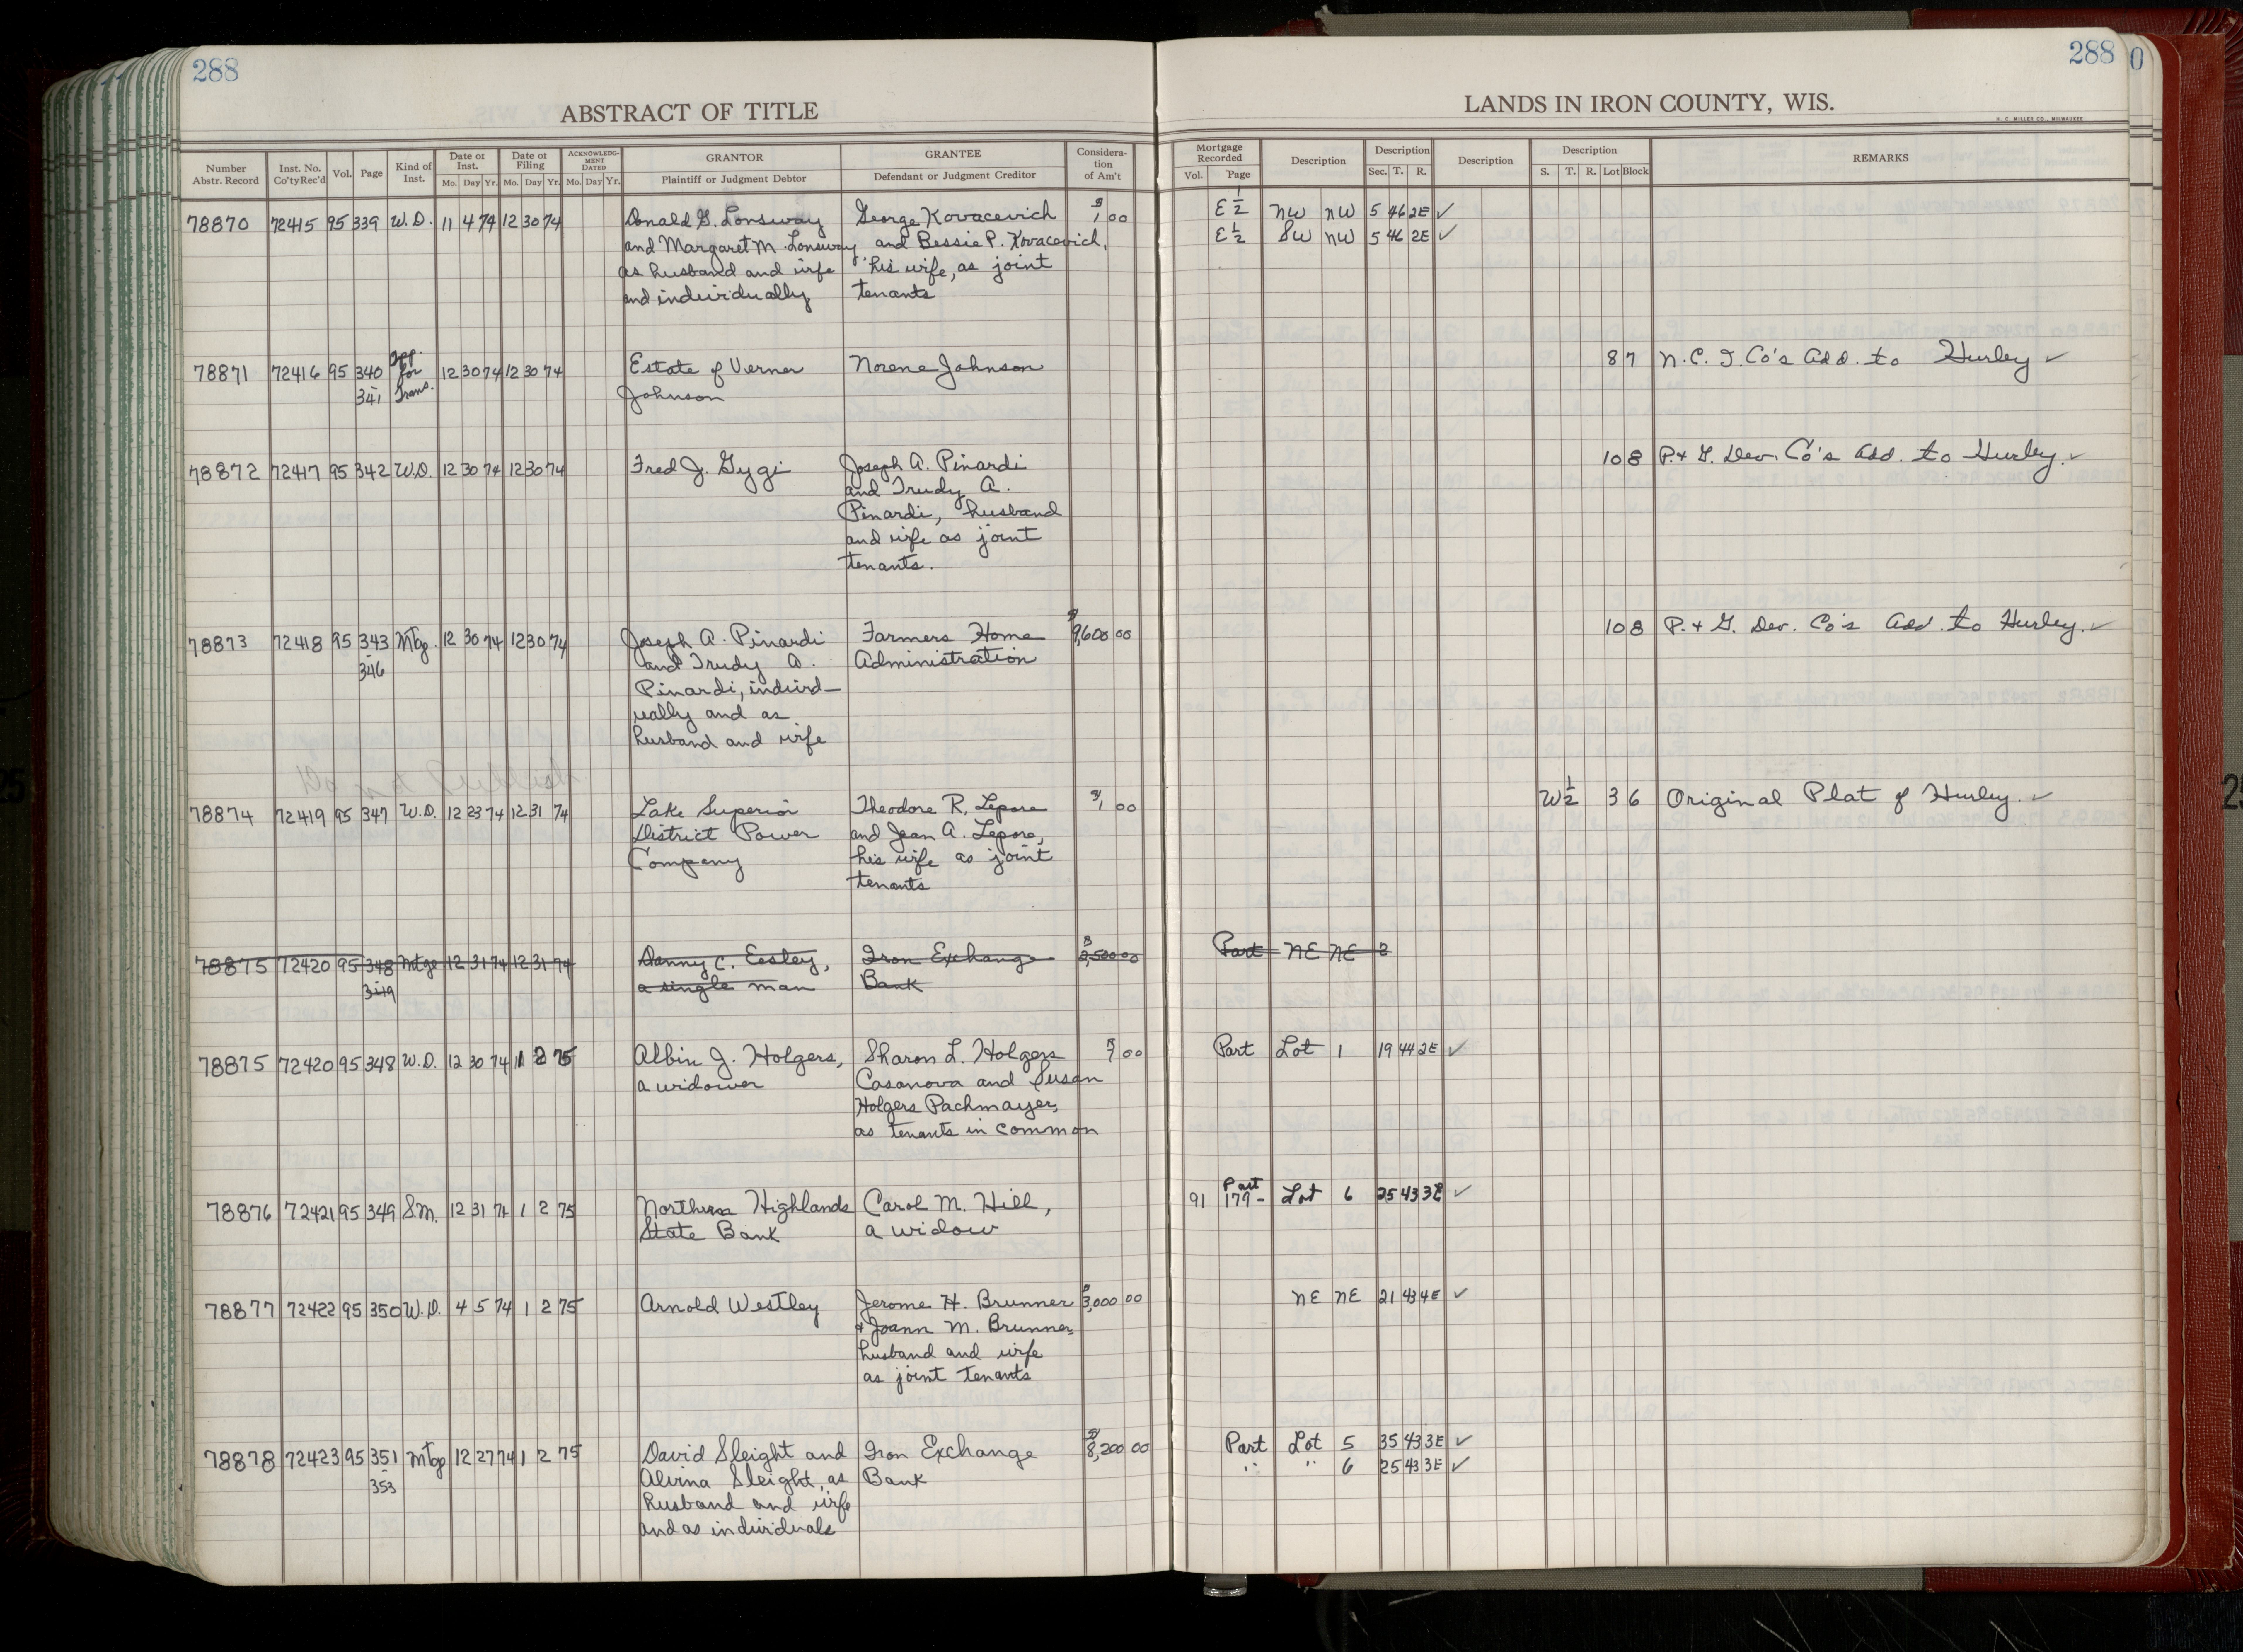 288
288
0
ABSTRACT OF TITLE
LANDS IN IRON COUNTY, WIS.
H. C. MILLER CO., MILWAUKEE
Number Abstr. Record
Inst. No. Co'ty Rec'd
Vol.
Page
Kind of Inst.
Date of Inst.
Mo. Day Yr.
Date of Filing
Mo. Day Yr.
ACKNOWLEDG-MENT DATED
Mo. Day Yr.
GRANTOR
Plaintiff or Judgment Debtor
GRANTEE
Defendant or Judgment Creditor
Considera-tion of Am't
Mortgage Recorded
Vol. Page
Description
Description
Sec. T. R.
Description
Description
S. T. R. Lot Block
REMARKS
78870 72415 95 339 W.D. 11 4 74 12 30 74 Donald G. Lonsway George Kovacevich $1 00 E 1/2 NW NW 5 46 2E ✓
and Margaret M. Lonsway and Bessie P. Kovacevich, E 1/2 SW NW 5 46 2E ✓
as husband and wife his wife, as joint
and individually tenants
78871 72416 95 340 - 341 App. for Trans. 12 30 74 12 30 74 Estate of Verner Norene Johnson 8 7 N.C.I. Co's Add. to Hurley ✓
Johnson
78872 72417 95 342 W.D. 12 30 74 12 30 74 Fred J. Gygi Joseph A. Pinardi 10 8 P. + G. Dev. Co's Add. to Hurley. ✓
and Trudy A.
Pinardi, husband
and wife as joint
tenants.
78873 72418 95 343 - 346 Mtg. 12 30 74 12 30 74 Joseph A. Pinardi Farmers Home $9,600 00 10 8 P. + G. Dev. Co's Add. to Hurley. ✓
and Trudy A. Administration
Pinardi, individ-
ually and as
husband and wife
78874 72419 95 347 W.D. 12 23 74 12 31 74 Lake Superior Theodore R. Lepore $1 00 W 1/2 3 6 Original Plat of Hurley. ✓
District Power and Jean A. Lepore,
Company his wife as joint
tenants
78875 72420 95 348 - 349 Mtge 12 31 74 12 31 74 Danny C. Eastey, Iron Exchange $2,500 00 Part NE NE 2
a single man Bank
78875 72420 95 348 W.D. 12 30 74 1 2 75 Albin J. Holgers, Sharon L. Holgers $1 00 Part Lot 1 19 44 2E ✓
a widower Casanova and Susan
Holgers Pachmayer,
as tenants in common
78876 72421 95 349 S.M. 12 31 74 1 2 75 Northern Highlands Carol M. Hill, 91 179- Part Lot 6 25 43 3E ✓
State Bank a widow
78877 72422 95 350 W.D. 4 5 74 1 2 75 Arnold Westley Jerome H. Brunner $3,000 00 NE NE 21 43 4E ✓
+ Joann M. Brunner,
husband and wife
as joint tenants
78878 72423 95 351 - 353 Mtg 12 27 74 1 2 75 David Sleight and Iron Exchange $8,200 00 Part Lot 5 35 43 3E ✓
Alvina Sleight, as Bank " " 6 25 43 3E ✓
husband and wife
and as individuals